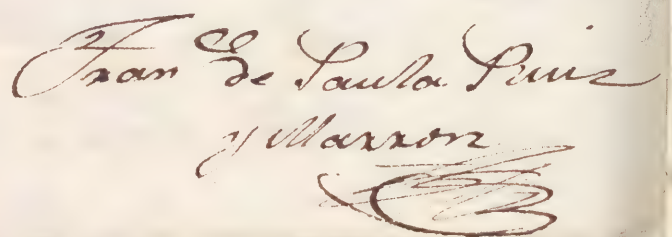 Fran.co de Paula Ruiz
y Marron